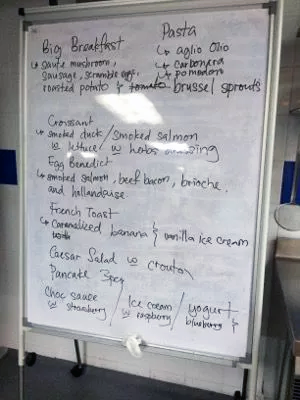 Big Breakfast
↳ saute mushroom,
sausage, scramble eggs,
roasted potato & tomato
Pasta
↳ aglio olio
↳ carbonera
↳ pomodoro
brussel sprouts
Croissant
↳ smoked duck / smoked salmon
w lettuce / w herbs dressing
Egg Benedict
↳ smoked salmon, beef bacon, brioche,
and hollandaise
French Toast
↳ Caramalized banana & vanilla Ice cream
Caesar Salad w crouton
Pancake 3pcs
Choc sauce / Ice cream / yogurt
w strawberry / w raspberry / blueberry &